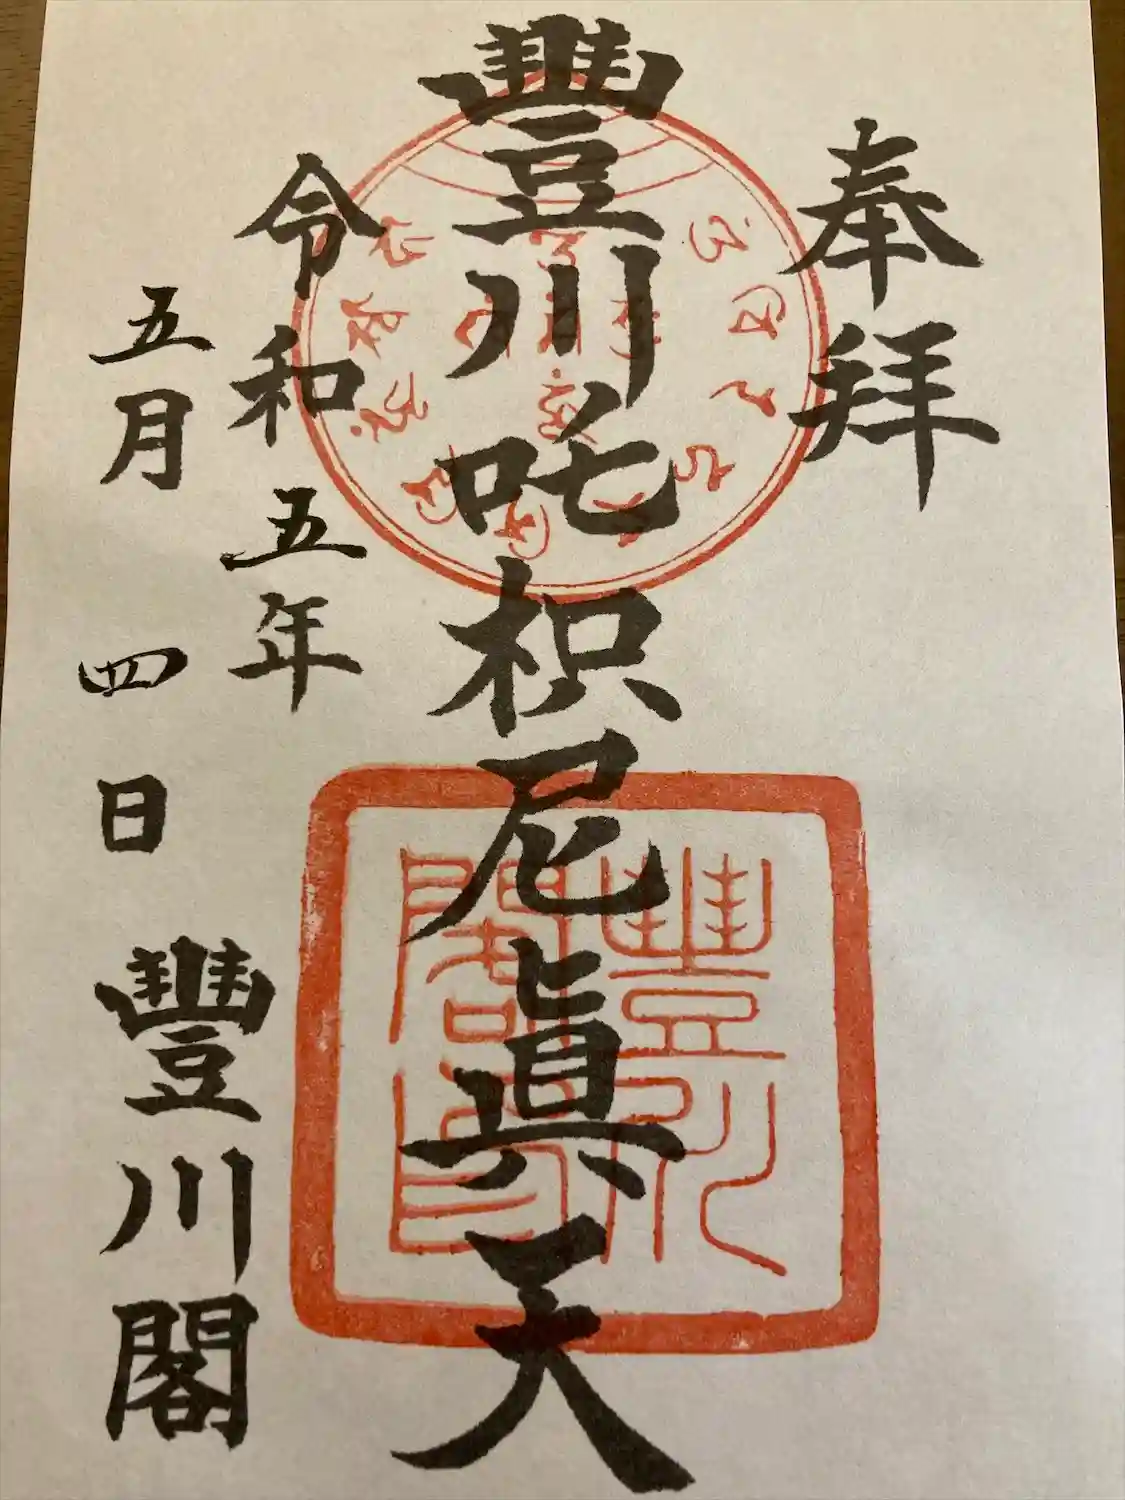 奉拜
豐川吒枳尼眞天
令和五年
五月四日
豐川閣
豐川閣印